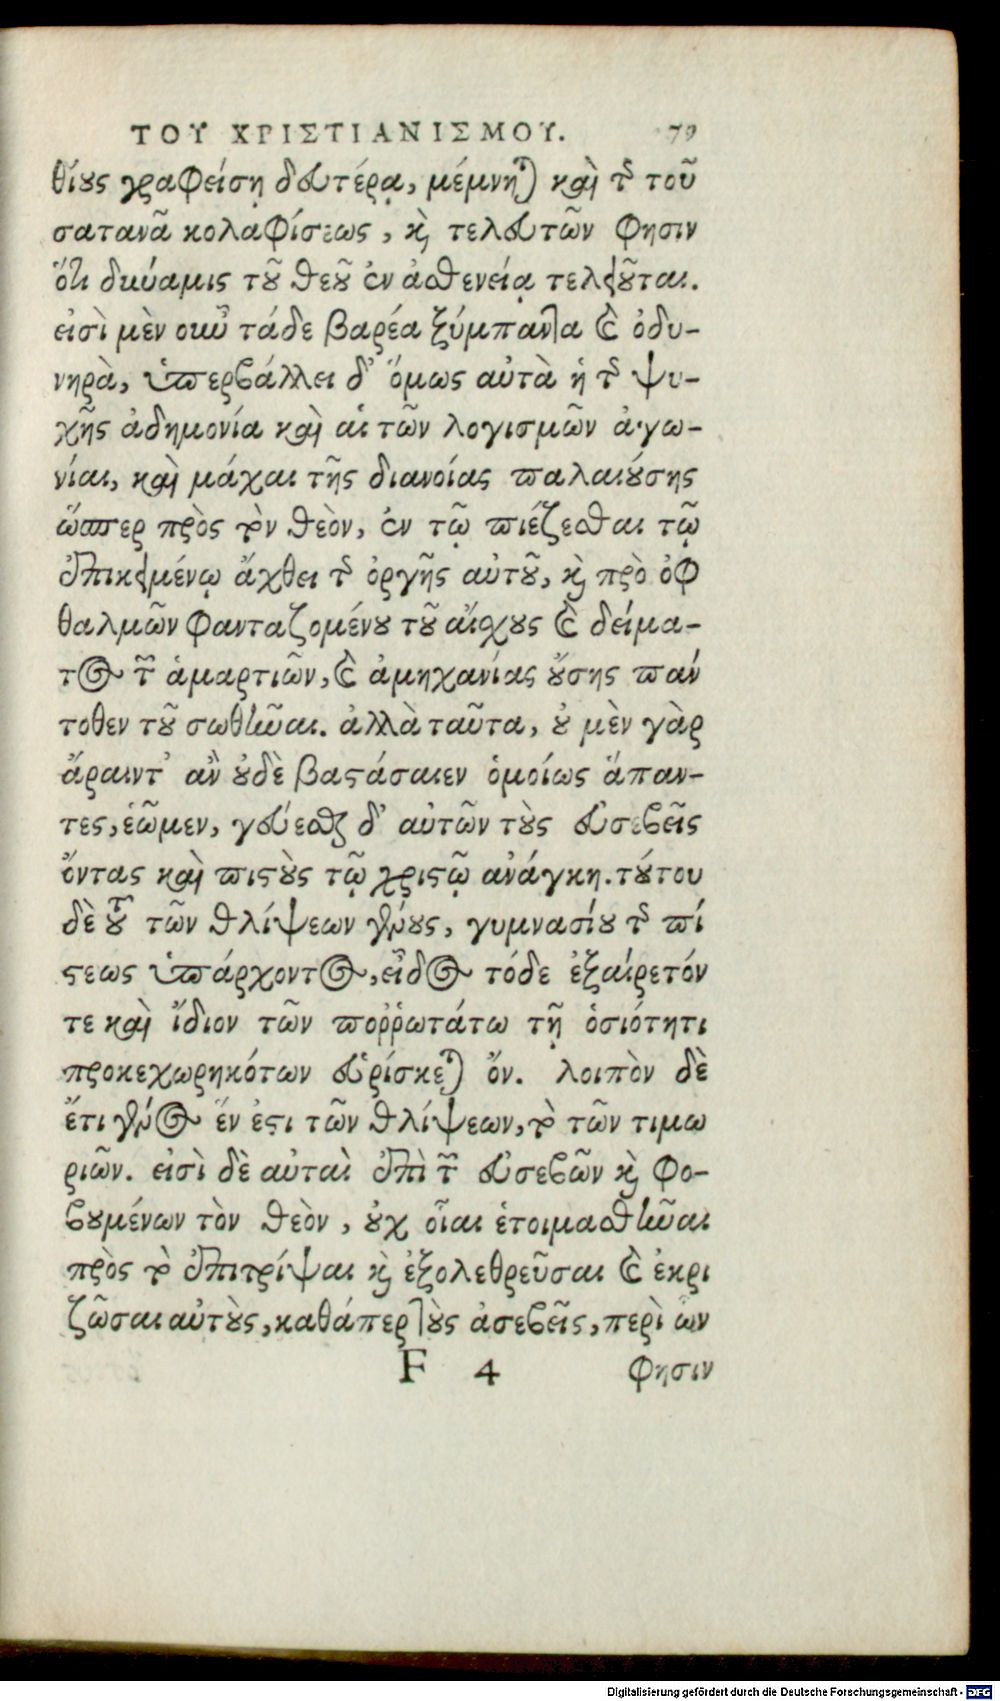 ΤΟΥ ΧΡΙΣΤΙΑΝΙΣΜΟΥ. 79
θίους γραφείσῃ δευτέρᾳ, μέμνηται καὶ τῆς τοῦ
σατανᾶ κολαφίσεως, καὶ τελευτῶν φησιν
ὅτι δύναμις τοῦ θεοῦ ἐν ἀσθενείᾳ τελειοῦται.
εἰσὶ μὲν οὖν τάδε βαρέα ξύμπαντα καὶ ὀδυ-
νηρὰ, ὑπερβάλλει δ' ὅμως αὐτὰ ἡ τῆς ψυ-
χῆς ἀδημονία καὶ αἱ τῶν λογισμῶν ἀγω-
νίαι, καὶ μάχαι τῆς διανοίας παλαιούσης
ὥσπερ πρὸς τὸν θεὸν, ἐν τῷ πιέζεσθαι τῷ
ἐπικειμένῳ ἄχθει τῆς ὀργῆς αὐτοῦ, καὶ πρὸ ὀφ
θαλμῶν φανταζομένου τοῦ αἴσχους καὶ δείμα-
τος τῶν ἁμαρτιῶν, καὶ ἀμηχανίας οὔσης παν
τοθεν τοῦ σωθῆναι. ἀλλὰ ταῦτα, οὐ μὲν γὰρ
ἄραιντ' ἂν οὐδὲ βαστάσαιεν ὁμοίως ἅπαν-
τες, ἐῶμεν, γεύεσθαι δ' αὐτῶν τοὺς εὐσεβεῖς
ὄντας καὶ πιστοὺς τῷ χριστῷ ἀνάγκη. τούτου
δὲ τοῦ τῶν θλίψεων γένους, γυμνασίου τῆς πί
στεως ὑπάρχοντος, εἶδος τόδε ἐξαίρετόν
τε καὶ ἴδιον τῶν ποῤῥωτάτω τῇ ὁσιότητι
προκεχωρηκότων εὑρίσκεται ὄν. λοιπὸν δὲ
ἔτι γένος ἕν ἐστι τῶν θλίψεων, τὸ τῶν τιμω
ριῶν. εἰσὶ δὲ αὗται ἐπὶ τῶν εὐσεβῶν καὶ φο-
βουμένων τὸν θεὸν, οὐχ οἷαι ἑτοιμασθῆναι
πρὸς τὸ ἐπιτρίψαι καὶ ἐξολεθρεῦσαι καὶ ἐκρι
ζῶσαι αὐτοὺς, καθάπερ τοὺς ἀσεβεῖς, περὶ ὧν
F 4 φησιν
Digitalisierung gefördert durch die Deutsche Forschungsgemeinschaft - DFG